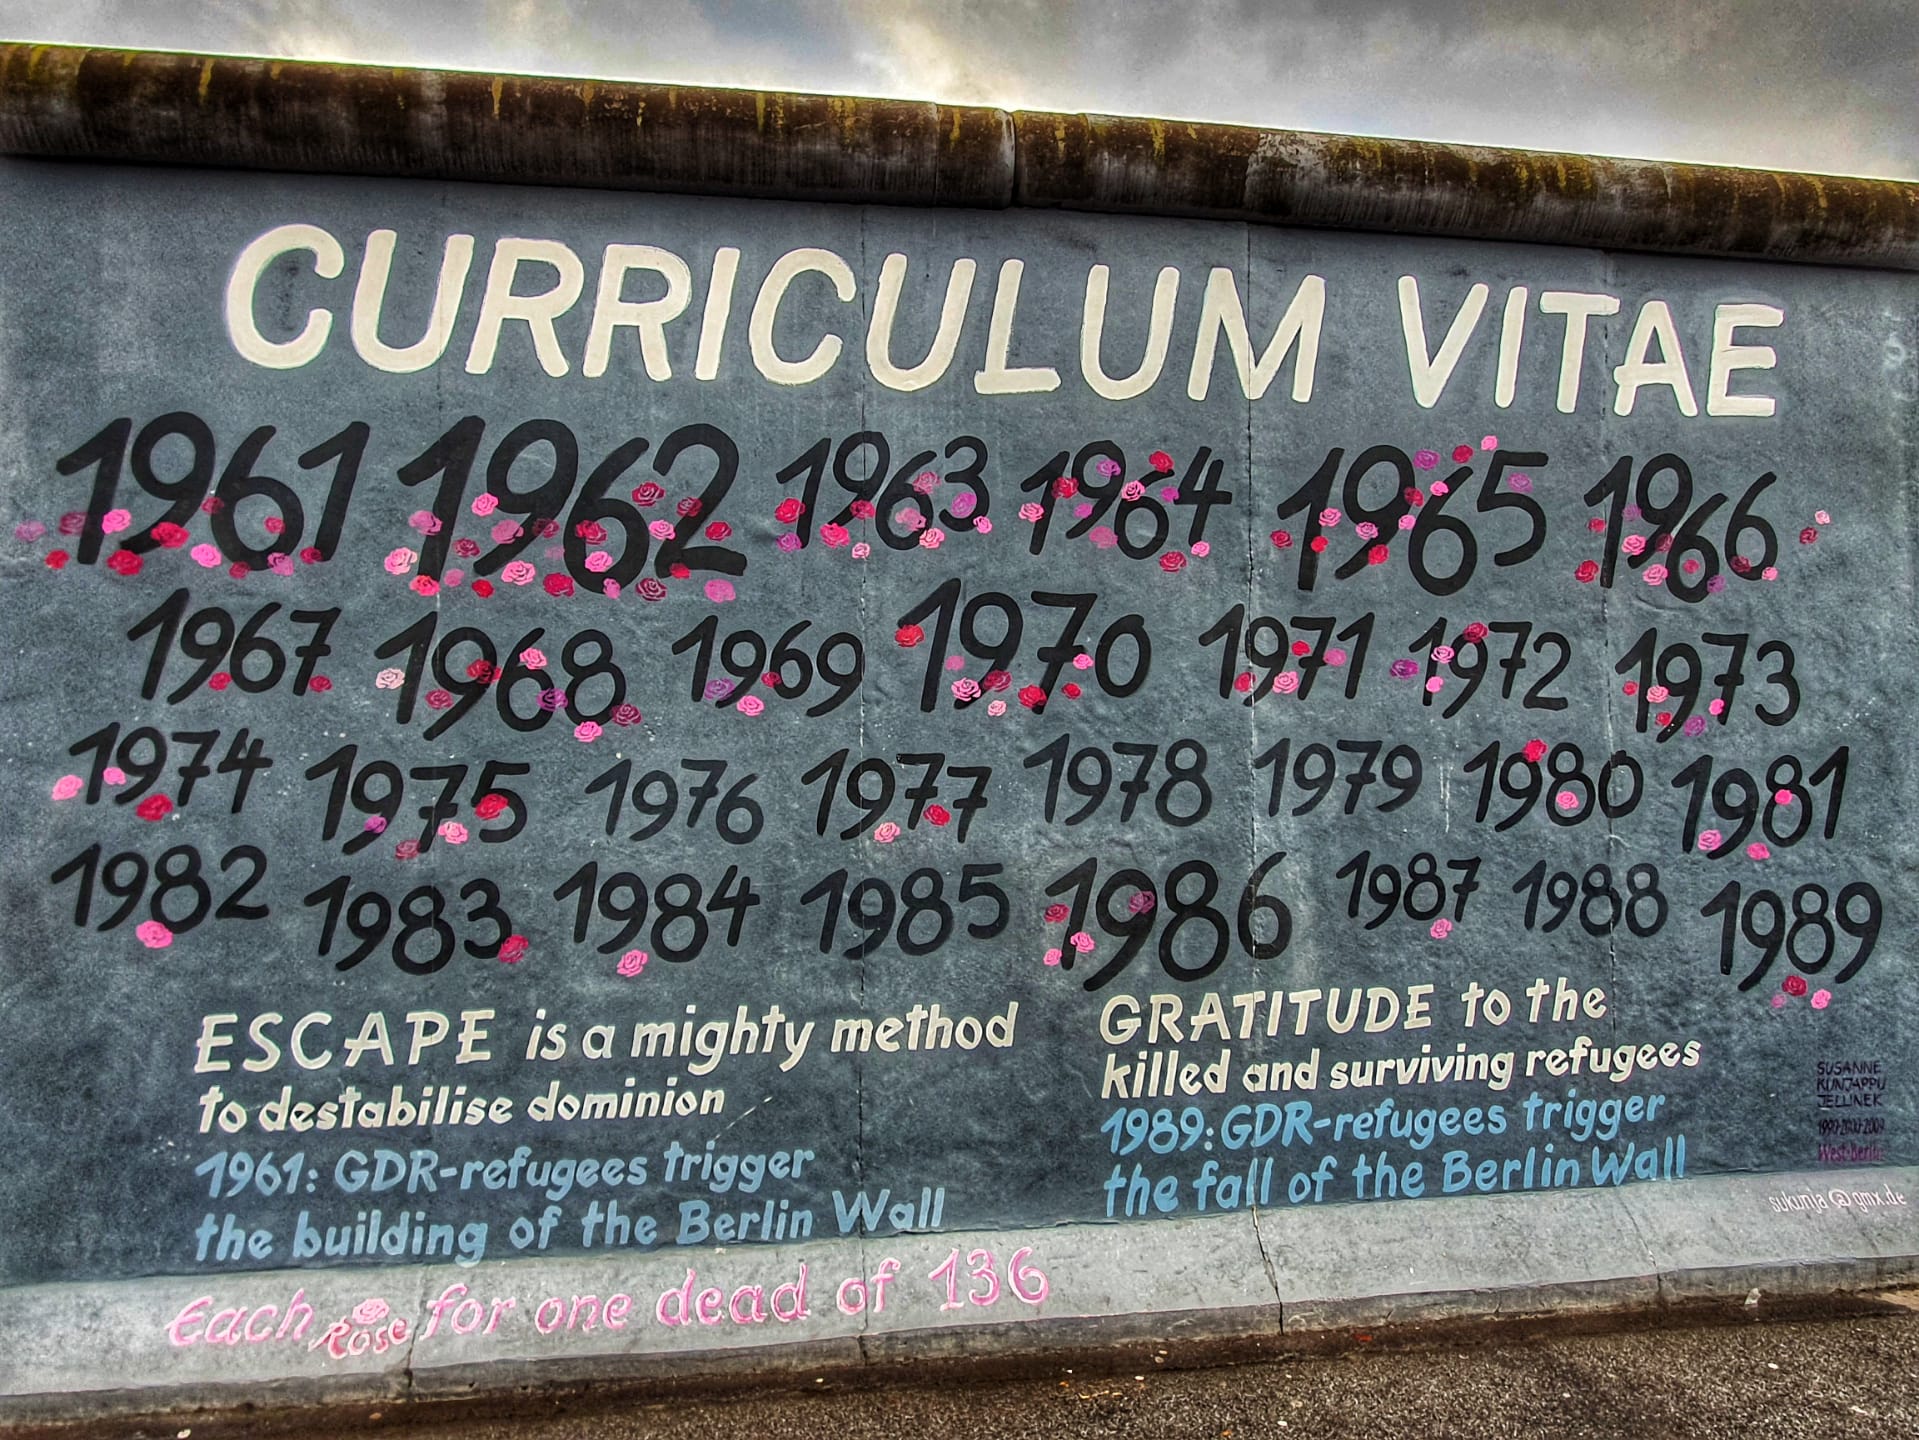 CURRICULUM VITAE
1961 1962 1963 1964 1965 1966
1967 1968 1969 1970 1971 1972 1973
1974 1975 1976 1977 1978 1979 1980 1981
1982 1983 1984 1985 1986 1987 1988 1989
ESCAPE is a mighty method
to destabilise dominion
1961: GDR-refugees trigger
the building of the Berlin Wall
GRATITUDE to the
killed and surviving refugees
1989: GDR-refugees trigger
the fall of the Berlin Wall
SUSANNE
KUNJAPPU
JELLINEK
West-Berlin
sukunja@gmx.de
Each Rose for one dead of 136